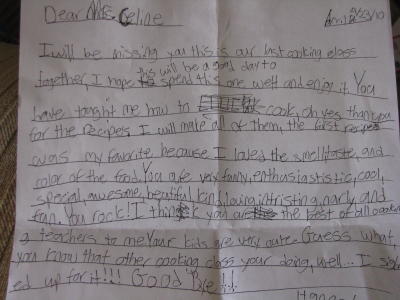 Dear Ms. Celine
April 23/10
I will be missing you this is our last cooking class
this will be a good day to
together, I hope to spend this one well and enjoy it. You
have taught me how to cook, oh yes thank you
for the recipes I will make all of them, the first recipe
was my favorite, because I loved the smell, taste, and
color of the food. You are very funny, enthusiastistic, cool,
special, awesome, beautiful, kind, loving, intristing, narly, and
fun. You rock! I think you are the best of all cooking
teachers to me. Your kids are very cute. Guess what,
you know that other cooking class your doing, well... I sign
ed up for it!!! Good Bye!!